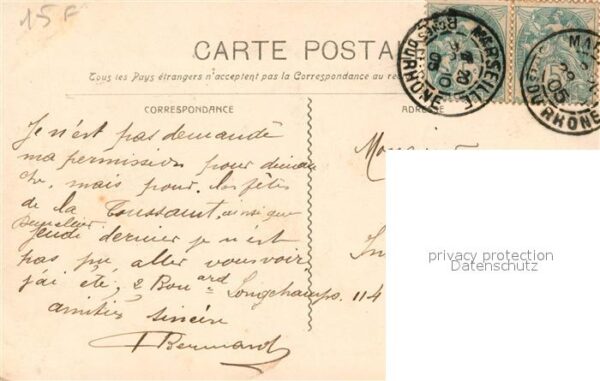 15F
CARTE POSTALE
Tous les Pays étrangers n'acceptent pas la Correspondance au
CORRESPONDANCE
ADRESSE
MARSEILLE
BCHES DU RHONE
05
MA
DU RHONE
05
Je n'est pas demandé
ma permission pour diman
che, mais pour les fêtes
de la Toussaint, ainsi que
jeudi dernier je n'est
pas pu aller vous voir
j'ai été, 2 Boulard Longchamps. 114
amitiés sincère
Bernard
privacy protection
Datenschutz